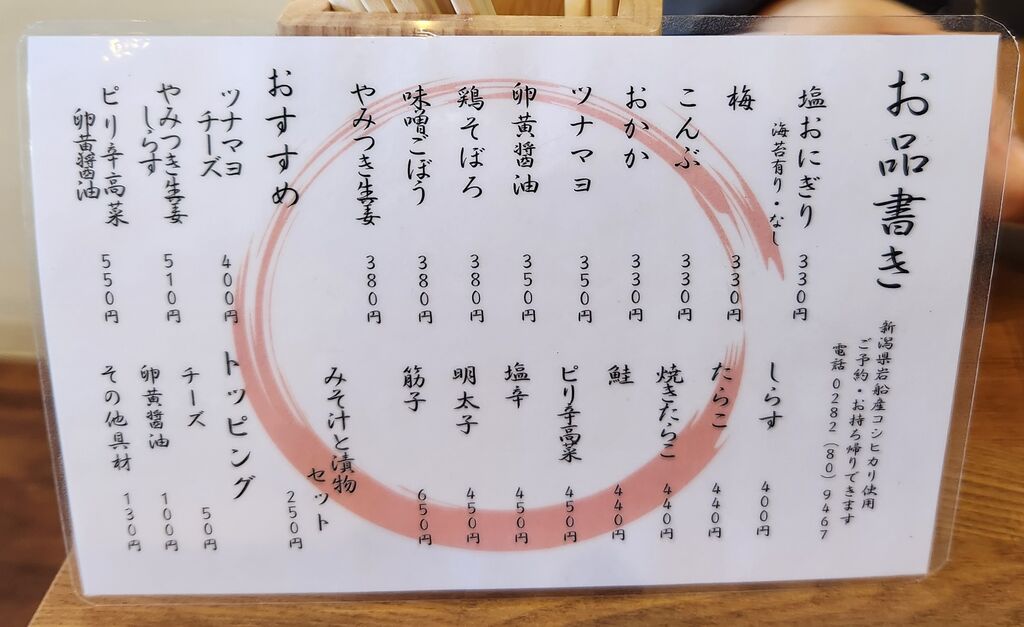 お品書き
新潟県岩船産コシヒカリ使用
ご予約・お持ち帰りできます
電話 0282(80)9467
塩おにぎり 330円
海苔有り・なし
梅 330円
こんぶ 330円
おかか 330円
ツナマヨ 350円
卵黄醤油 350円
鶏そぼろ 380円
味噌ごぼう 380円
やみつき生姜 380円
しらす 400円
たらこ 440円
焼きたらこ 440円
鮭 440円
ピリ辛高菜 450円
塩辛 450円
明太子 450円
筋子 650円
みそ汁と漬物
セット 250円
おすすめ
ツナマヨ
チーズ 400円
やみつき生姜
しらす 510円
ピリ辛高菜
卵黄醤油 550円
トッピング
チーズ 50円
卵黄醤油 100円
その他具材 130円